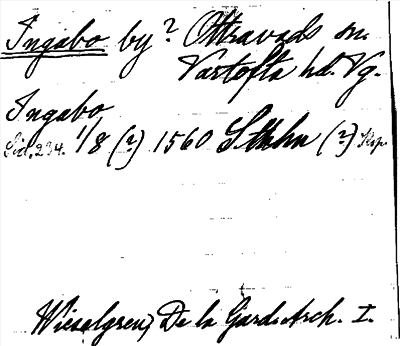 Ingabo by? Ottravads sn.
Vartofta hd. Vg.
Ingabo
Sid. 234. 1/8 (?) 1560 Sthlm (?) Kop.
Wieselgren, De la Gard. Arch. I.